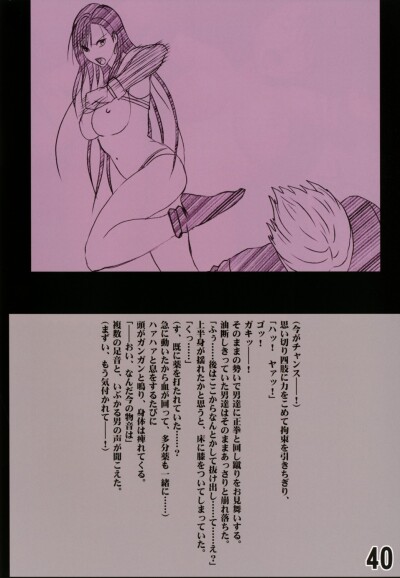 (今がチャンス――!)
思い切り四肢に力をこめて拘束を引きちぎり、
「ハッ! ヤァッ!」
ゴッ!
ガキッ――!
そのままの勢いで男達に正拳と回し蹴りをお見舞いする。
油断しきっていた男達はそのままあっさりと崩れ落ちた。
「ふぅ……後はここからなんとかして抜け出し……て……え?」
上半身が揺れたかと思うと、床に膝をついてしまっていた。
「くっ……」
(す、既に薬を打たれていた……?
急に動いたから血が回って、多分薬も一緒に……)
ハァハァと息をするたびに
頭がガンガンと鳴り、身体は痺れてくる。
「――おい、なんだ今の物音は」
複数の足音と、いぶかる男の声が聞こえた。
(まずい、もう気付かれて――!)
40